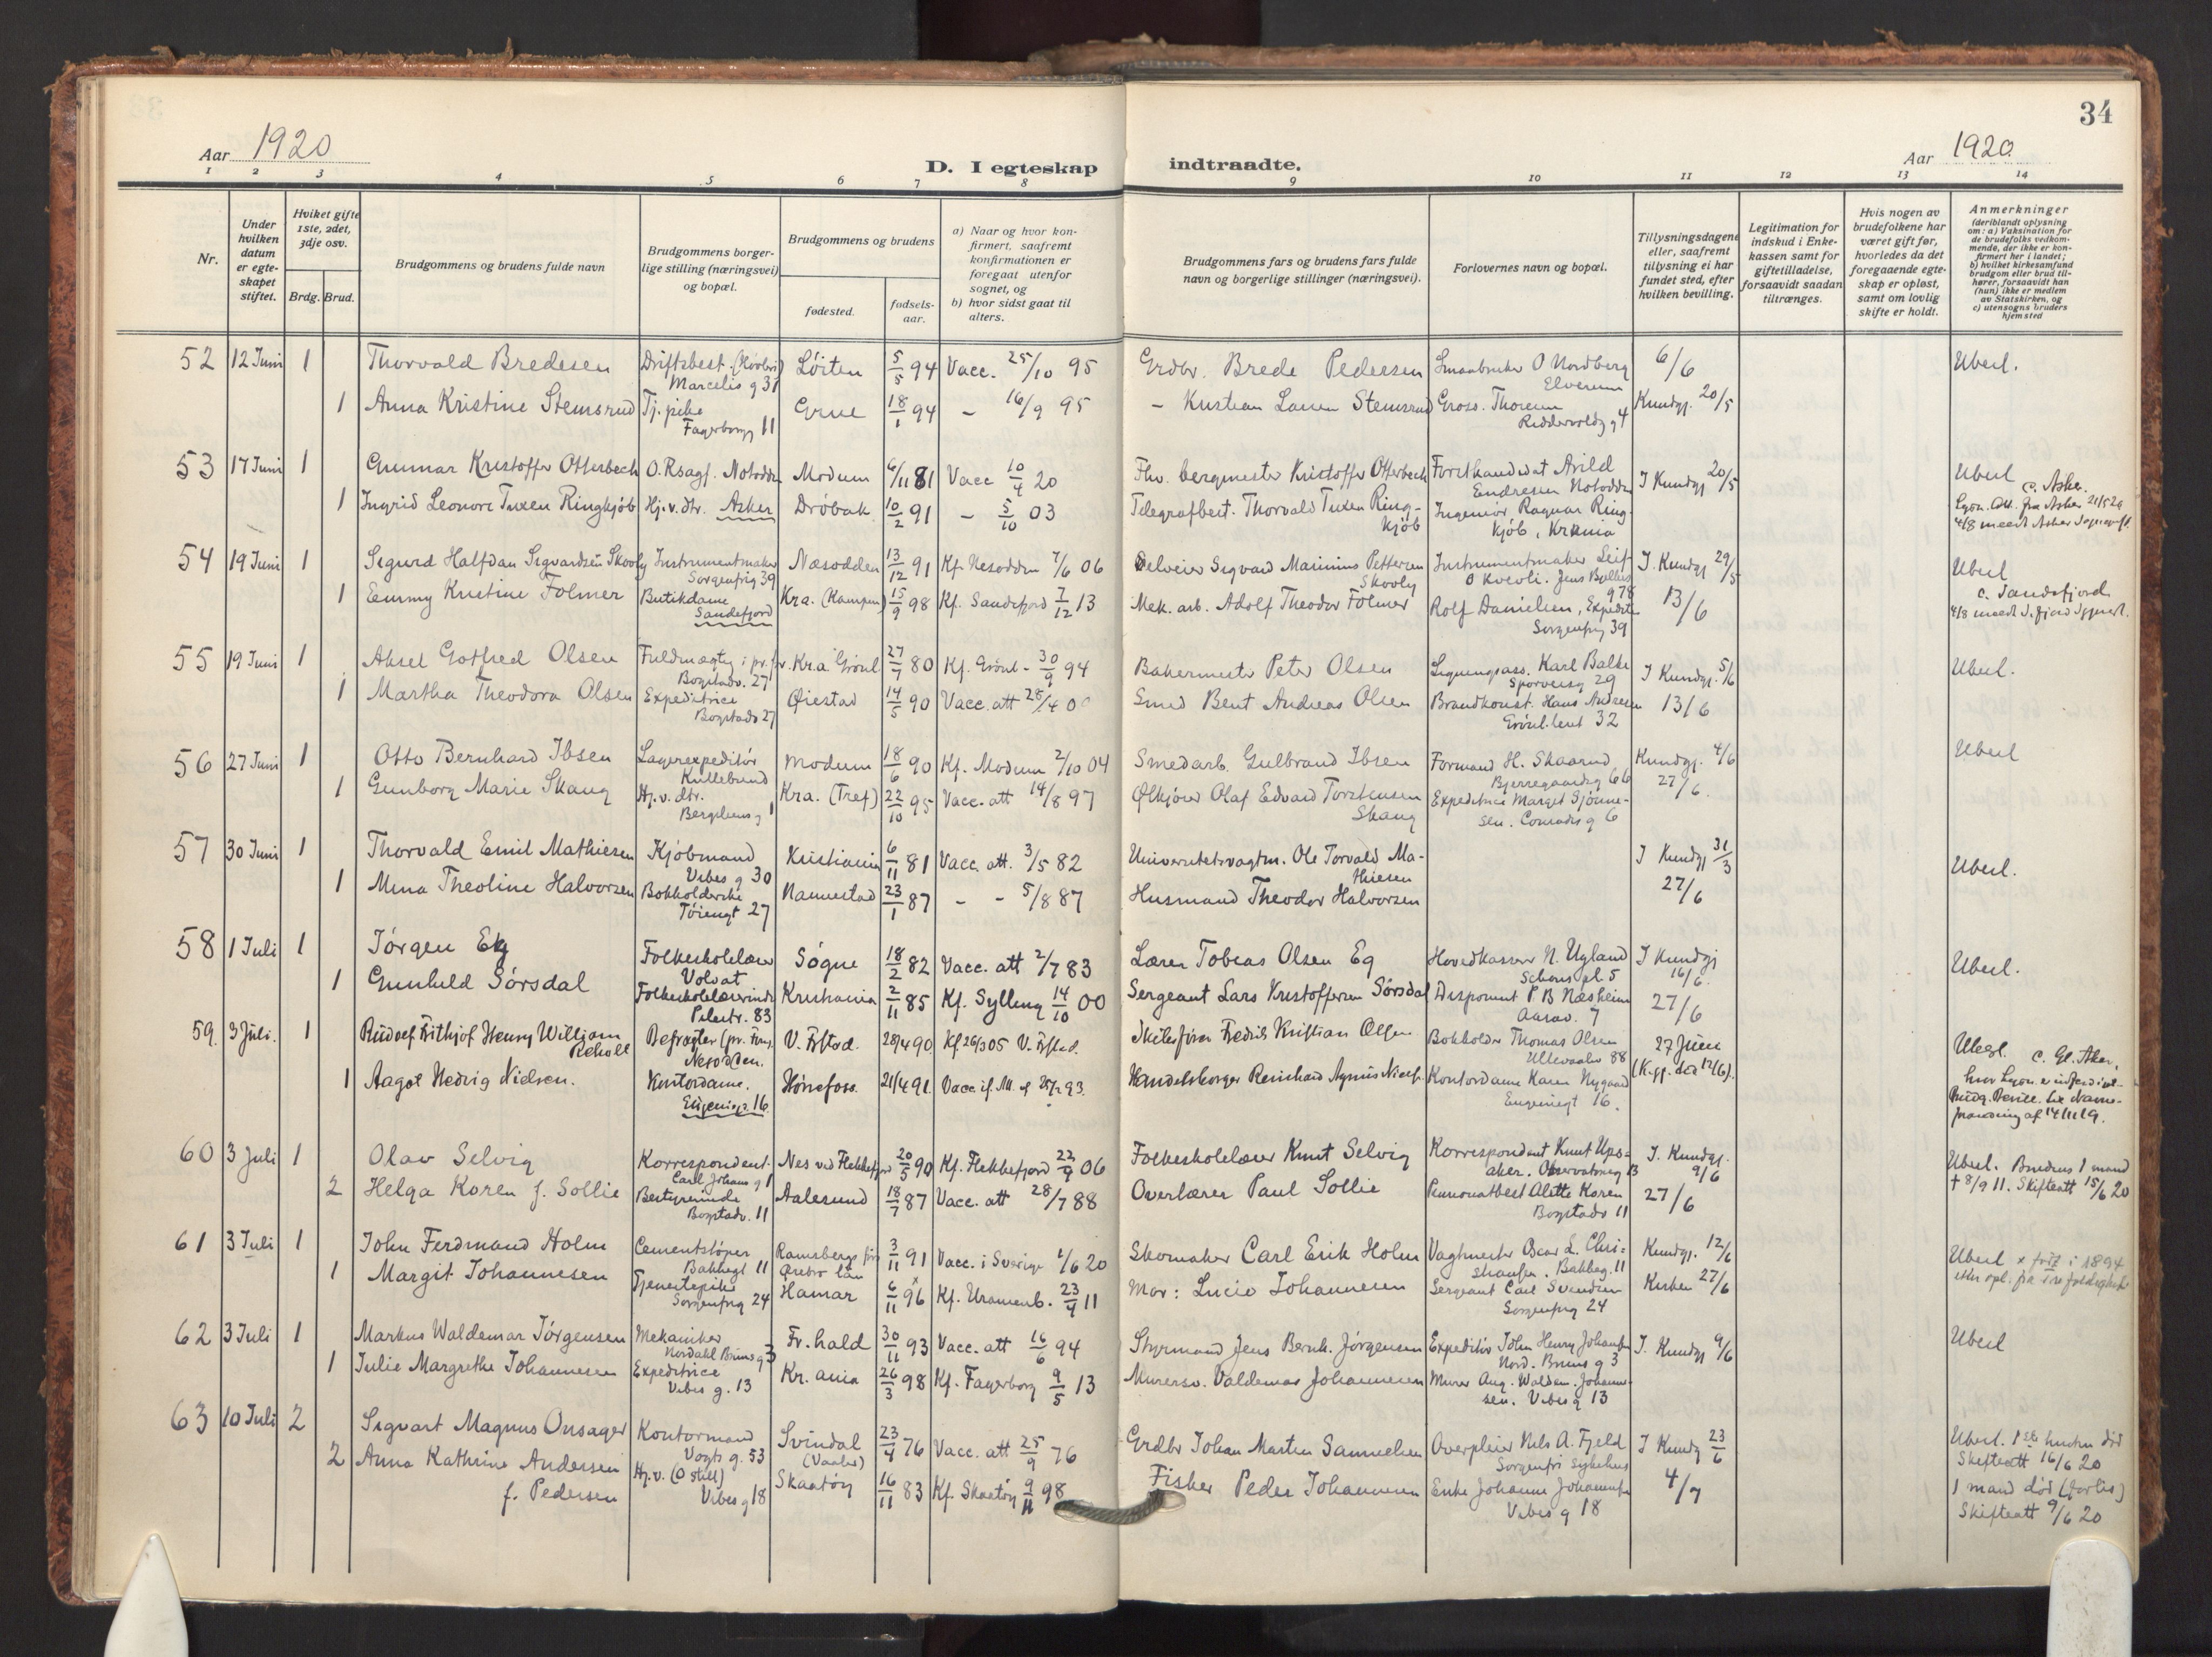 34
Aar 1920
D. I egteskap indtraadte.
Aar 1920
1 2 3 4 5 6 7 8 9 10 11 12 13 14
Nr.
Under hvilken datum er egteskapet stiftet.
Hviket gifte 1ste, 2det, 3dje osv.
Brdg. Brud.
Brudgommens og brudens fulde navn
Brudgommens borgerlige stilling (næringsvei) og bopæl.
Brudgommens og brudens
fødested.
fødselsaar.
a) Naar og hvor konfirmert, saafremt konfirmationen er foregaat utenfor sognet, og
b) hvor sidst gaat til alters.
Brudgommens fars og brudens fars fulde navn og borgerlige stillinger (næringsvei).
Forlovernes navn og bopæl.
Tillysningsdagene eller, saafremt tillysning ei har fundet sted, efter hvilken bevilling.
Legitimation for indskud i Enkekassen samt for giftetilladelse, forsaavidt saadan tiltrænges.
Hvis nogen av brudefolkene har været gift før, hvorledes da det foregaaende egteskap er opløst, samt om lovlig skifte er holdt.
Anmerkninger
(deriblandt oplysning om: a) Vaksination for de brudefolks vedkommende, der ikke er konfirmert her i landet; b) hvilket kirkesamfund brudgom eller brud tilhører, forsaavidt han (hun) ikke er medlem av Statskirken, og c) utensogns bruders hjemsted
52 12 Juni 1 Thorvald Bredesen Driftsbest. Marcelis g 31 Løiten 5/5 94 Vacc. 25/10 95 Grdbr. Brede Pedersen Smaabruker O Nordberg Elverum 6/6 Ubesl.
1 Anna Kristine Stemsrud Tj. pike Fagerborgg 11 Grue 18/1 94 - 16/9 95 - Kristian Larsen Stemsrud Gross. Thoresen Riddervoldsg 4 Kundgj. 20/5
53 17 Juni 1 Gunnar Kristoffer Otterbech O.Rsagf. Notodden Modum 6/11 81 Vacc 10/4 20 Fhv. bergmester Kristoffer Otterbech Forstkandidat Arild Endresen Notodden I Kundgj 20/5 Ubesl
1 Ingrid Leonore Tuxen Ringkjøb Hj. v. dtr. Asker Drøbak 10/2 91 - 5/10 03 Telegrafbest. Thorvald Tuxen Ringkjøb Ingeniør Ragnar Ringkjøb, Krania c. Asker.
54 19 Juni 1 Sigurd Halfdan Sigvardsen Skovly Instrumentmaker Sorgenfrig 39 Næsodden 13/12 91 Kf. Nesodden 7/6 06 Sigvard Marinius Pettersen Skovly Instrumentmaker Leif O Kvevli. Jens Bjelkes g 78 I. Kundgj 29/5 Ubesl
1 Emmy Kristine Folmer Butikdame Sandefjord Kra. (Kampen) 15/9 98 Kf. Sandefjord 7/12 13 Mek. arb. Adolf Theodor Folmer Rolf Danielsen, Expeditør Sorgenfrig 39 13/6 c. Sandefjord
55 19 Juni 1 Aksel Gotfred Olsen Fuldmægtig i pr. f. Bogstadv. 27 Kra Grønl 27/7 80 Kf. Grønl - 30/9 94 Bakermester Peter Olsen Ligningsass. Karl Balke Sporveisg 29 I Kundgj. 5/6 Ubesl.
1 Martha Theodora Olsen Expeditrice Bogstadv 27 Øiestad 14/5 90 Vacc. att 28/4 00 Smed Bent Andreas Olsen Brandkonst. Hans Andresen Grønl.leret 32 13/6
56 27 Juni 1 Otto Bernhard Ibsen Lagerexpeditør Kullebund Modum 18/6 90 Kf. Modum 2/10 04 Smedarb. Gulbrand Ibsen Formand H. Skaarud Bjerregaardsg 66 Kundgj. 4/6 Ubesl
1 Gunborg Marie Skaug Hj. v. dtr. Bergliensg 1 Kra. (Tref) 22/10 95 Vacc. att 14/8 97 Ølkjører Olaf Edvard Torstensen Skaug Expeditrice Margit Sjønnesen. Conradis g 6 27/6.
57 30 Juni 1 Thorvald Emil Mathiesen Kjøbmand Vibes g 30 Kristiania 6/11 81 Vacc. att. 3/5 82 Universitetsvagtm. Ole Torvald Mathiesen I Kundgj 31/3 Ubesl.
1 Mina Theoline Halvorsen Bokholderske Tøiengt 27 Nannestad 23/1 87 - - 5/8 87 Husmand Theodor Halvorsen 27/6
58 1 Juli 1 Jørgen Eg Folkeskolelærer Volvat Søgne 18/2 82 Vacc. att 2/7 83 Lærer Tobias Olsen Eg Hovedkasserer N. Ugland Schous pl. 5 I Kundgj 16/6. Ubesl.
1 Gunhild Sørsdal Folkeskolelærerinde Pilestr. 83 Kristiania 2/11 85 Kf. Sylling 14/10 00 Sergeant Lars Kristoffersen Sørsdal Disponent P B Næsheim Aasav. 7 27/6
59. 3 Juli. 1 Rudolf Frithjof Henry William Reholt Befragter (pr. firm.) Nesodden. V. Fr.stad. 28/4 90 Kf. 26/3 05 V. Fr.stad. Fredrik Kristian Olsen Bokholder Thomas Olsen Ullevaalsv 88 27 Juni Ubesl.
1 Aagot Hedvig Nielsen. Kontordame. Eugeniegt. 16 Hønefoss. 21/4 91. Handelsborger Reinchard Agnius Niels. Kontordame Karen Nygaard Eugeniegt 16. (K.gj. den 12/6). c. Gl. Aker,
60 3 Juli 1 Olav Selvig Korrespondent. Carl Johans g 1 Nes ved Flekkefjord 20/5 90 Kf. Flekkefjord 22/9 06 Folkeskolelærer Knut Selvig Korrespondent Knut Upsaker. Observatorieg 13 I. Kundgj. 9/6 Ubesl. Brudens 1 mand
2 Helga Koren f. Sollie Bestyrerinde Bogstadv. 11 Aalesund 18/7 87 Vacc. att 28/7 88 Overlærer Paul Sollie Pensionatbest Alette Koren Bogstadv 11 27/6 † 8/9 11. Skifteatt 15/6 20
61 3 Juli 1 John Ferdinand Holm Cementstøper Bakkegt 11 Ramsbergs Ørebro län 3/11 91 Vacc. i Sverige 1/6 20 Skomaker Carl Erik Holm Vagtmester Oscar L. Christiansen. Bakkeg. 11 Kundgj. 12/6 Ubesl
1 Margit Johannesen Tjenestepike Sorgenfrig 24 Hamar 6/11 96 Kf. Uranienb. 23/4 11 Mor: Lucie Johannesen Sergeant Carl Svendsen Sorgenfrig 24 Kirken 27/6
62 3 Juli 1 Markus Waldemar Jørgensen Mekaniker Nordahl Bruns g 3 Fr.hald 30/11 93 Vacc. att 16/6 94 Styrmand Jens Bernh. Jørgensen Expeditør John Henry Johansen Nord. Bruns g 3 I. Kundgj 9/6 Ubesl
1 Julie Margrethe Johannesen Expeditrice Vibes g. 13 Kr. ania 26/3 98 Kf. Fagerborg 9/5 13 Murersv. Valdemar Johannesen Murer Aug. Waldem. Johannesen. Vibes g 13
63 10 Juli 2 Sigvart Magnus Onsager Kontormand Vogts g. 53 Svindal (Vaaler) 23/4 76 Vacc. att 25/9 76 Grdbr Johan Martin Samuelsen Overpleier Nils A. Fjeld Sorgenfri Sykehus I Kundg 23/6 Ubesl. 1ste hustru død Skifteatt 16/6 20
2 Anna Kathrine Andersen f. Pedersen Hj. v. (O still) Vibes g 18 Skaatøy 16/11 83 Kf. Skaatøy 9/11 98 Fisker Peder Johannesen Enke Johanne Johannesen Vibes g 18 4/7 1 mand død (forlis) Skifteatt 9/6 20